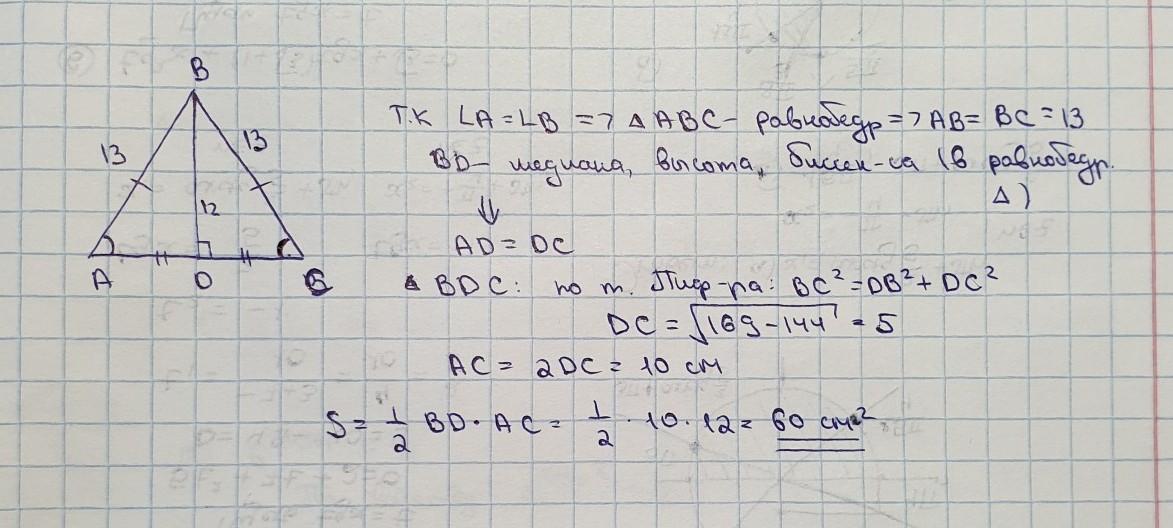 B
13
13
12
A
D
C
Т.К ∠A = ∠B => △ABC - равнобедр => AB = BC = 13
BD - медиана, высота, биссек-са (в равнобедр.
△)
⇓
AD = DC
△BDC: по т. Пиф-ра: BC² = DB² + DC²
DC = √169 - 144 = 5
AC = 2DC = 10 см
S = 1/2 BD · AC = 1/2 · 10 · 12 = 60 см²